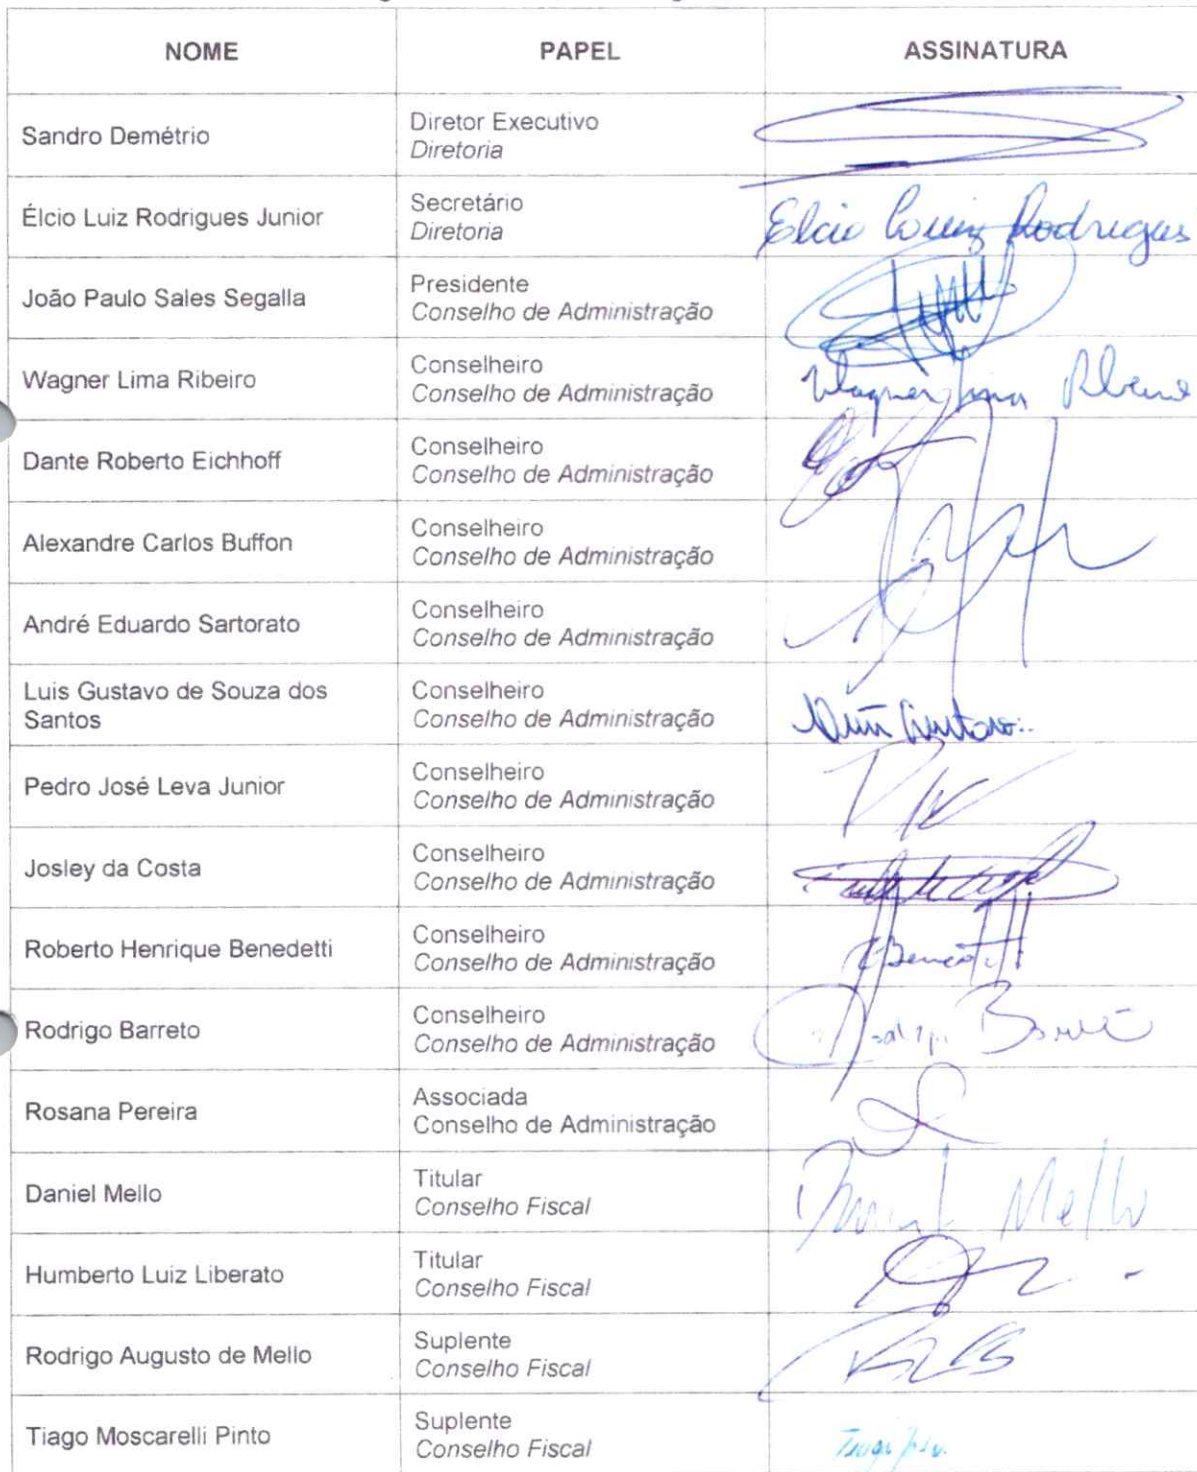 NOME PAPEL ASSINATURA
Sandro Demétrio Diretor Executivo
Diretoria
Élcio Luiz Rodrigues Junior Secretário
Diretoria
Elcio Luiz Rodrigues
João Paulo Sales Segalla Presidente
Conselho de Administração
Wagner Lima Ribeiro Conselheiro
Conselho de Administração
Wagner Lima Ribeiro
Dante Roberto Eichhoff Conselheiro
Conselho de Administração
Alexandre Carlos Buffon Conselheiro
Conselho de Administração
André Eduardo Sartorato Conselheiro
Conselho de Administração
Luis Gustavo de Souza dos
Santos
Conselheiro
Conselho de Administração
Pedro José Leva Junior Conselheiro
Conselho de Administração
Josley da Costa Conselheiro
Conselho de Administração
Roberto Henrique Benedetti Conselheiro
Conselho de Administração
Rodrigo Barreto Conselheiro
Conselho de Administração
Rosana Pereira Associada
Conselho de Administração
Daniel Mello Titular
Conselho Fiscal
Daniel Mello
Humberto Luiz Liberato Titular
Conselho Fiscal
Rodrigo Augusto de Mello Suplente
Conselho Fiscal
Tiago Moscarelli Pinto Suplente
Conselho Fiscal